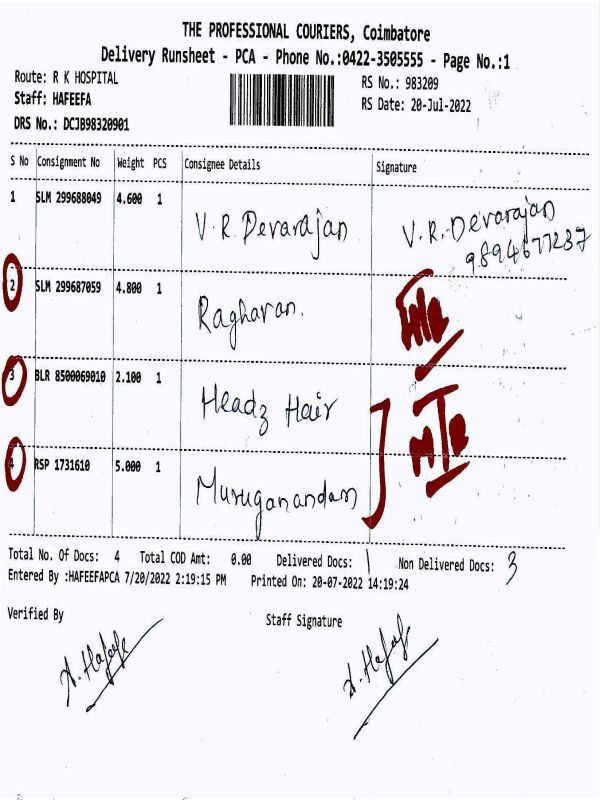 THE PROFESSIONAL COURIERS, Coimbatore
Delivery Runsheet - PCA - Phone No.:0422-3505555 - Page No.:1
Route: R K HOSPITAL RS No.: 983209
Staff: HAFEEFA RS Date: 20-Jul-2022
DRS No.: DCJB98320901
S No Consignment No Weight PCS Consignee Details Signature
1 SLM 299688049 4.600 1 V.R. Devarajan V.R. Devarajan
9894677237
2 SLM 299687059 4.800 1 Raghavan.
3 BLR 8500069010 2.100 1 Headz Hair
4 RSP 1731610 5.000 1 Muruganandam
Total No. Of Docs: 4 Total COD Amt: 0.00 Delivered Docs: 1 Non Delivered Docs: 3
Entered By :HAFEEFAPCA 7/20/2022 2:19:15 PM Printed On: 20-07-2022 14:19:24
Verified By Staff Signature